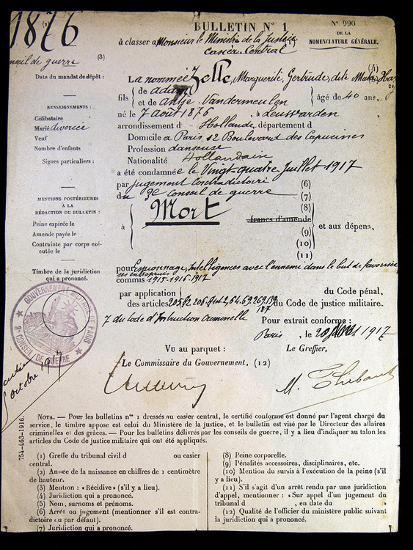 1876
BULLETIN N° 1
N° 990
DE LA
NOMENCLATURE GÉNÉRALE.
à classer à Monsieur le Ministre de la Justice
Casier Central
(3)
conseil de guerre
Date du mandat de dépôt :
La nommée Zelle, Marguerite, Gertrude, dite Mata Hari
de Adam
fils { et de Antje Vandermeulen } âgé de 40 ans
RENSEIGNEMENTS :
né le 7 août 1876 à Leuwarden
Célibataire
arrondissement d Hollande, département d
Marié divorcée
Domicile à Paris 12 Boulevard des Capucines
Veuf
Profession danseuse
Nombre d'enfants
Nationalité Hollandaise
Signes particuliers :
a été condamnée le Vingt-quatre Juillet 1917
par jugement contradictoire (6)
du 3e Conseil de guerre (7)
MENTIONS POSTÉRIEURES
À LA
RÉDACTION DU BULLETIN :
à Mort (8)
francs d'amende
(9)
et aux dépens,
Peine expirée le
Amende payée le
(10)
Contrainte par corps exécutée le
(11)
Timbre de la juridiction
qui a prononcé.
pour Espionnage, Intelligences avec l'ennemi dans le but de favoriser
ses entreprises
commis 1915-1916-1917
par application
du Code pénal,
des articles 205, 206, 64, 69, 269, 139
du Code de justice militaire.
187
7 du Code d'Instruction Criminelle
Pour extrait conforme :
Paris, le 20 1917
GOUVERNEMENT
3e CONSEIL DE GUERRE
Vu au parquet :
Le Greffier,
Le Commissaire du Gouvernement, (12)
octobre
M. Thibaut
NOTA. — Pour les bulletins n° 1 dressés au casier central, le certifié conforme est donné par l'agent chargé du
service, le timbre apposé est celui du Ministère de la justice, et le bulletin est visé par le Directeur des affaires
criminelles et des grâces. — Pour les bulletins délivrés par les conseils de guerre, il y a lieu d'indiquer au talon les
articles du Code de justice militaire qui ont été appliqués.
754-463-1916.
(1) Greffe du tribunal civil d ou casier
central.
(2) Année de la naissance en chiffres de 1 centimètre
de hauteur.
(3) Mention : « Récidive » (s'il y a lieu).
(4) Juridiction qui a prononcé.
(5) Nom, surnoms et prénoms.
(6) Arrêt ou jugement (mentionner s'il est contra-
dictoire ou par défaut).
(7) Juridiction qui a prononcé.
(8) Peine corporelle.
(9) Pénalités accessoires, disciplinaires, etc.
(10) Mention du sursis à l'exécution de la peine (s'il
y a lieu).
(11) S'il s'agit d'un arrêt rendu par une juridiction
d'appel, mentionner : « Sur appel d'un jugement du
tribunal d , en date du »
(12) Qualité de l'officier du ministère public suivant
la juridiction qui a prononcé.